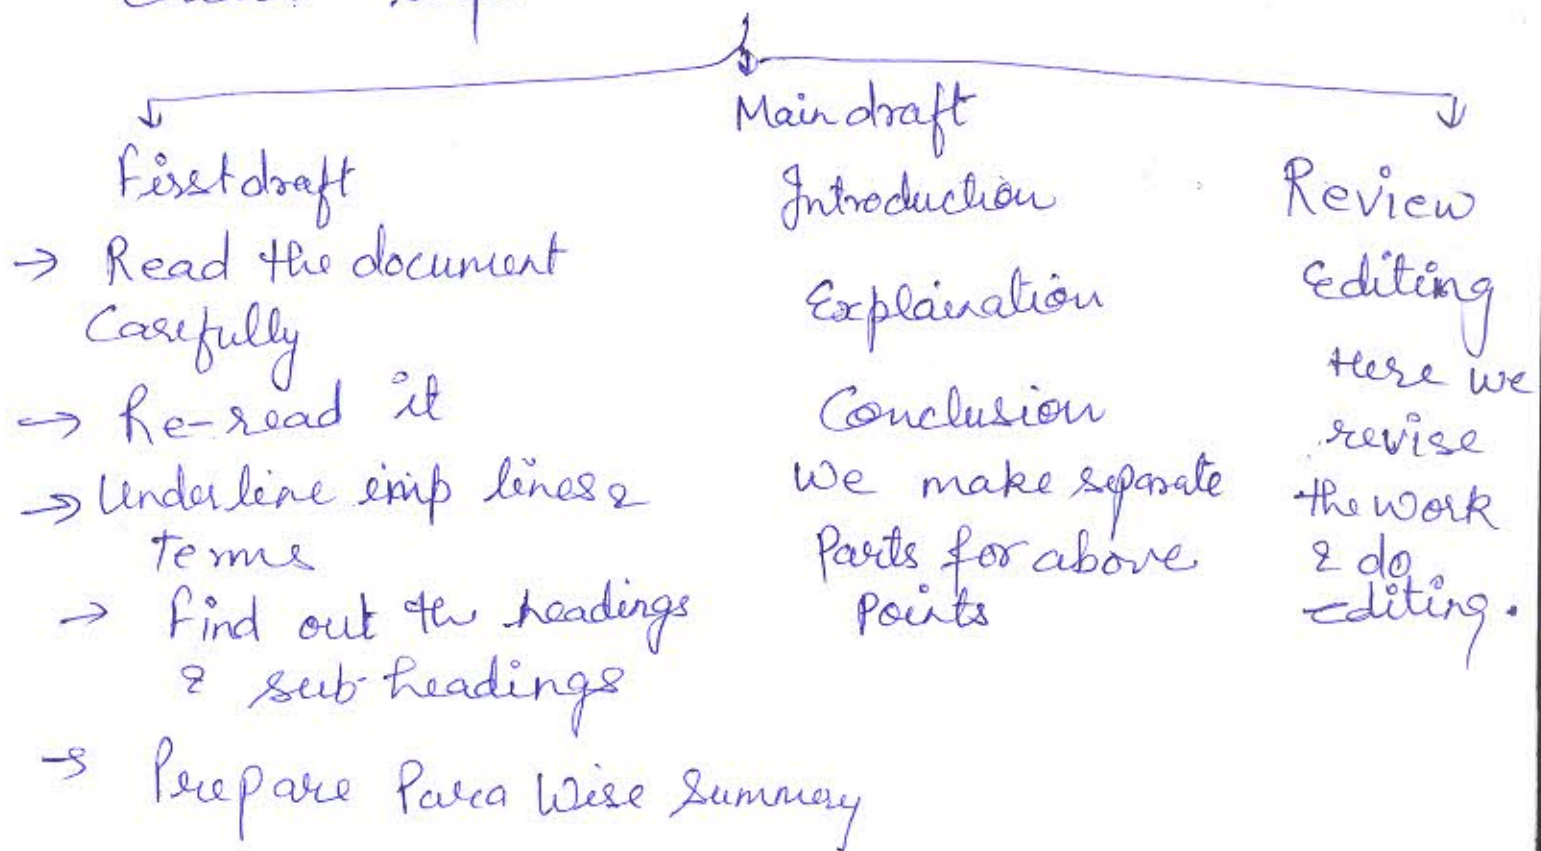 Main draft
First draft
→ Read the document
Carefully
→ Re-read it
→ Underline imp lines &
Terms
→ Find out the headings
& sub-headings
→ Prepare Para Wise Summary
Introduction
Explaination
Conclusion
We make separate
Parts for above
Points
Review
Editing
Here we
revise
the work
& do
Editing.